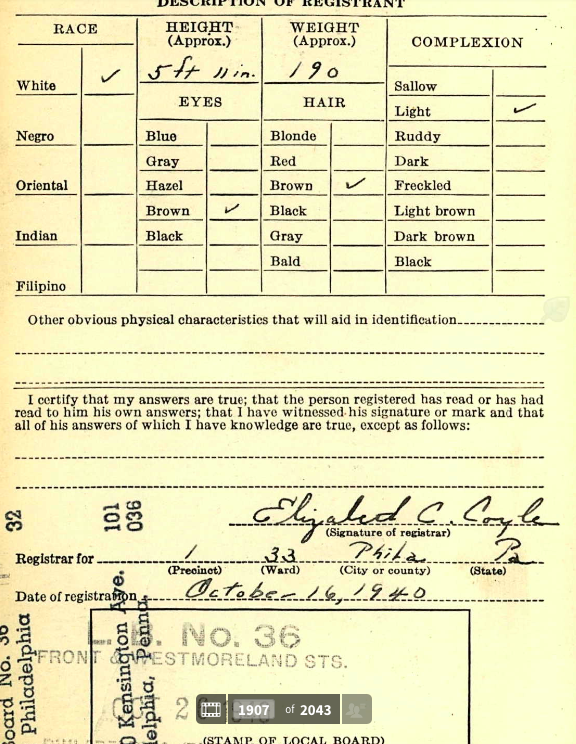 DESCRIPTION OF REGISTRANT
RACE
HEIGHT (Approx.)
WEIGHT (Approx.)
COMPLEXION
5 ft 11 in.
190
White ✓
Sallow
Light ✓
EYES
HAIR
Negro
Blue
Blonde
Ruddy
Gray
Red
Dark
Oriental
Hazel
Brown ✓
Freckled
Brown ✓
Black
Light brown
Indian
Black
Gray
Dark brown
Bald
Black
Filipino
Other obvious physical characteristics that will aid in identification
I certify that my answers are true; that the person registered has read or has had
read to him his own answers; that I have witnessed his signature or mark and that
all of his answers of which I have knowledge are true, except as follows:
32
101
036
Elizabeth C. Coyle
(Signature of registrar)
Registrar for 1 33 Phila Pa
(Precinct) (Ward) (City or county) (State)
Date of registration October 16, 1940
Board No. 36
Philadelphia
Kensington Ave.
delphia, Penna.
L.B. No. 36
FRONT & WESTMORELAND STS.
1907 of 2043
(STAMP OF LOCAL BOARD)